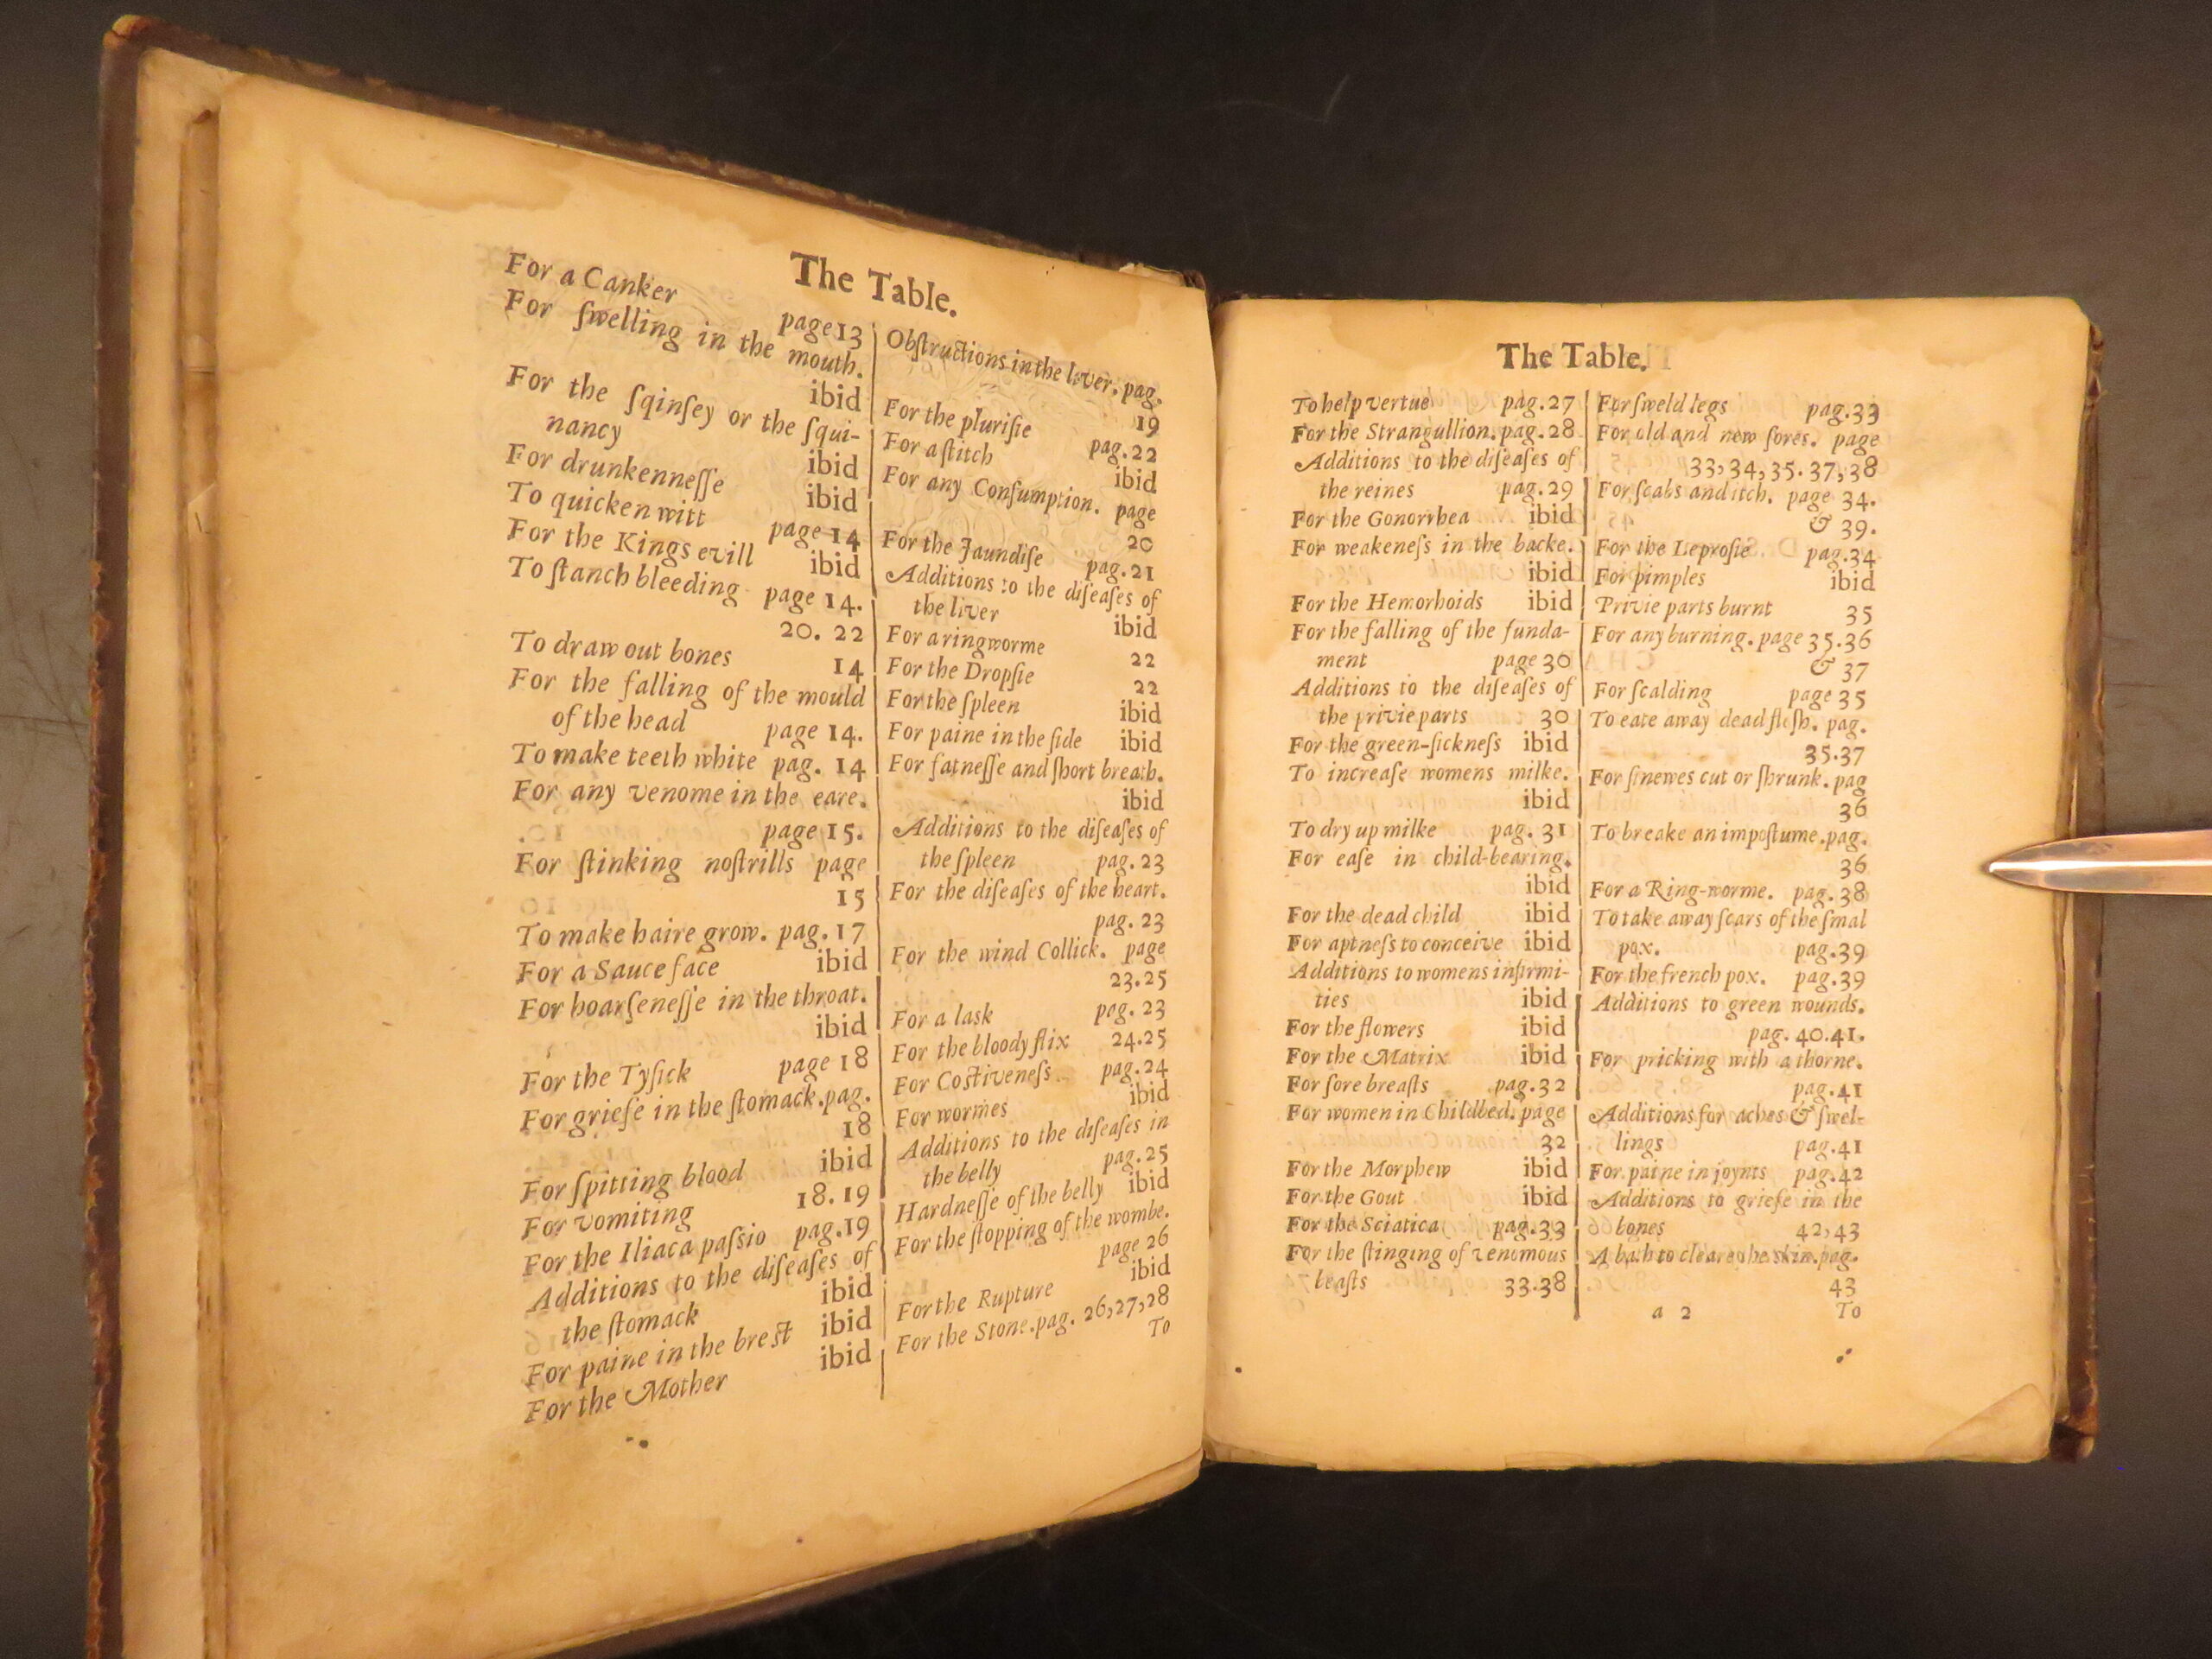 The Table.
For a Canker page 13
For ſwelling in the mouth.
ibid
For the ſqinſey or the ſqui-
nancy ibid
For drunkenneſſe ibid
To quicken witt page 14
For the Kings evill ibid
To ſtanch bleeding page 14.
20. 22
To draw out bones 14
For the falling of the mould
of the head page 14.
To make teeth white pag. 14
For any venome in the eare.
page 15.
For ſtinking noſtrills page
15
To make haire grow. pag. 17
For a Sauce face ibid
For hoarſeneſſe in the throat.
ibid
For the Tyſick page 18
For grieſe in the ſtomack.pag.
18
For ſpitting blood ibid
For vomiting 18. 19
For the Iliaca paſsio pag.19
Additions to the diſeaſes of
the ſtomack ibid
For paine in the breſt ibid
For the Mother ibid
Obſtructions in the liver. pag.
19
For the pluriſie pag.22
For a ſtitch ibid
For any Conſumption. page
20
For the Jaundiſe pag.21
Additions to the diſeaſes of
the liver ibid
For a ringworme 22
For the Dropſie 22
For the ſpleen ibid
For paine in the ſide ibid
For fatneſſe and ſhort breath.
ibid
Additions to the diſeaſes of
the ſpleen pag. 23
For the diſeaſes of the heart.
pag. 23
For the wind Collick. page
23.25
For a lask pag. 23
For the bloody flix 24.25
For Coſtiveneſs pag.24
For wormes ibid
Additions to the diſeaſes in
the belly pag.25
Hardneſſe of the belly ibid
For the ſtopping of the wombe.
page 26
For the Rupture ibid
For the Stone.pag. 26,27,28
To
The Table.
To help vertue pag.27
For the Strangullion. pag.28
Additions to the diſeaſes of
the reines pag.29
For the Gonorrhea ibid
For weakeneſs in the backe.
ibid
For the Hemorhoids ibid
For the falling of the funda-
ment page 30
Additions to the diſeaſes of
the privie parts 30
For the green-ſickneſs ibid
To increaſe womens milke.
ibid
To dry up milke pag. 31
For eaſe in child-bearing.
ibid
For the dead child ibid
For aptneſs to conceive ibid
Additions to womens infirmi-
ties ibid
For the flowers ibid
For the Matrix ibid
For ſore breaſts pag.32
For women in Childbed. page
32
For the Morphew ibid
For the Gout ibid
For the Sciatica pag.33
For the ſtinging of venomous
beaſts 33.38
For ſweld legs pag.33
For old and new ſores. page
33,34,35.37,38
For ſcabs and itch. page 34.
& 39.
For the Leproſie pag.34
For pimples ibid
Privie parts burnt 35
For any burning. page 35.36
& 37
For ſcalding page 35
To eate away dead fleſh. pag.
35.37
For ſinewes cut or ſhrunk. pag
36
To breake an impoſtume.pag.
36
For a Ring-worme. pag.38
To take away ſcars of the ſmal
pox. pag.39
For the french pox. pag.39
Additions to green wounds.
pag. 40.41.
For pricking with a thorne.
pag.41
Additions for aches & ſwel-
lings pag.41
For paine in joynts pag.42
Additions to grieſe in the
bones 42,43
A bath to cleare the skin.pag.
43
a 2 To